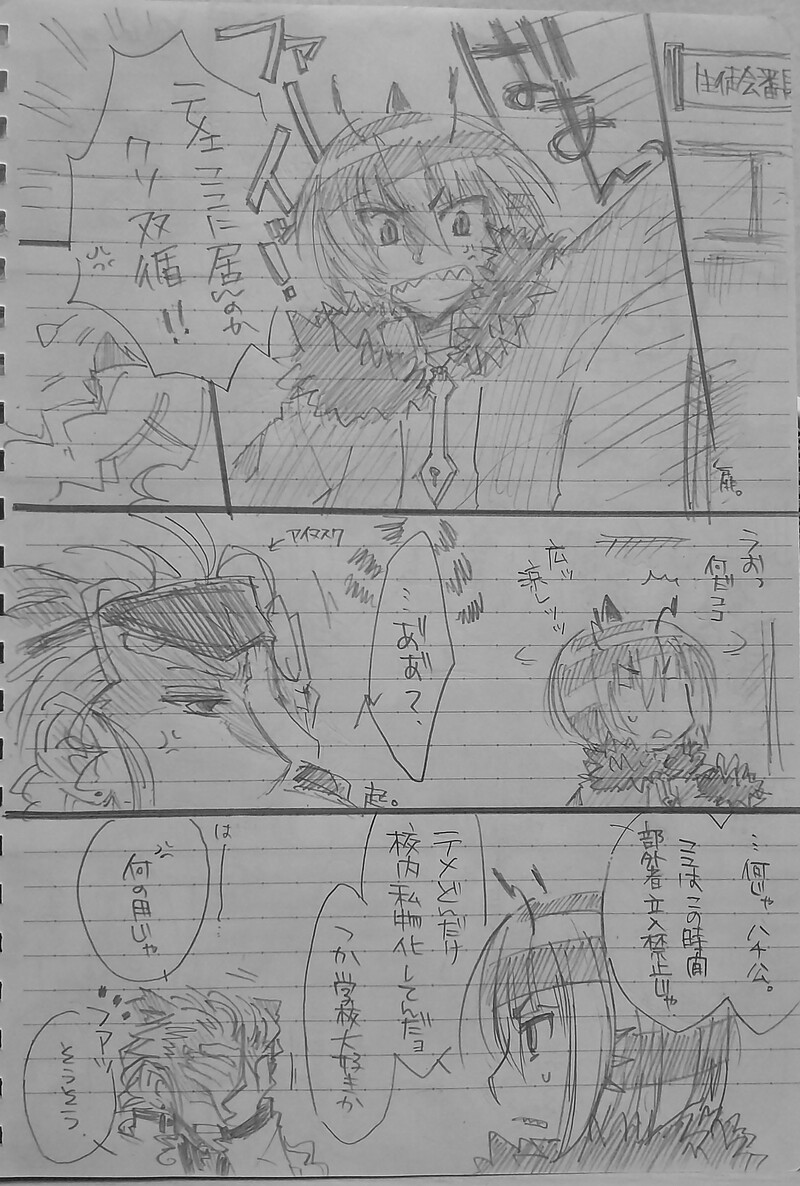 生徒会番長
ファイ!!
テメェココに居んのか
クソ双循!!
うおっ
何だココ
広ッ
涼しッッ
アイマスク
…あ゛あ゛?
起。
…何じゃハチ公。
ココはこの時間
部外者立入禁止じゃ。
テメどんだけ
校内私物化してんだョ
つか学校大好きか
は
何の用じゃ
ファッ
そうそう